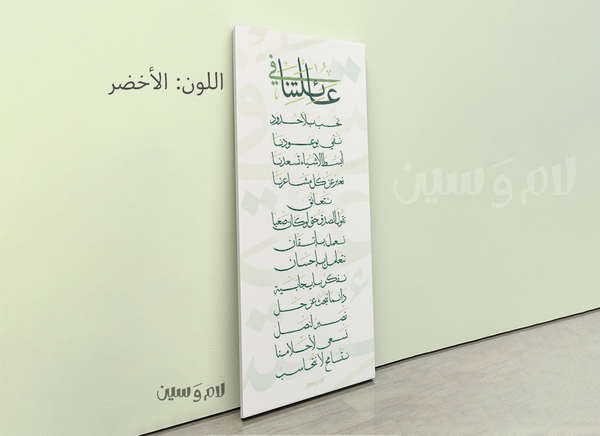 اللون: الأخضر
في عائلتنا
نحب بلا حدود
نفي بوعودنا
أبسط الأشياء تسعدنا
نعبر عن كل مشاعرنا
نتعانق
نقول الصدق حتى لو كان صعبا
نعمل بإتقان
نتعامل بإحسان
نفكر بإيجابية
دائما نبحث عن حل
نصبر لنصل
نسعى لأحلامنا
نتسامح لا نتحاسب
لام وَ سين
لام وَ سين